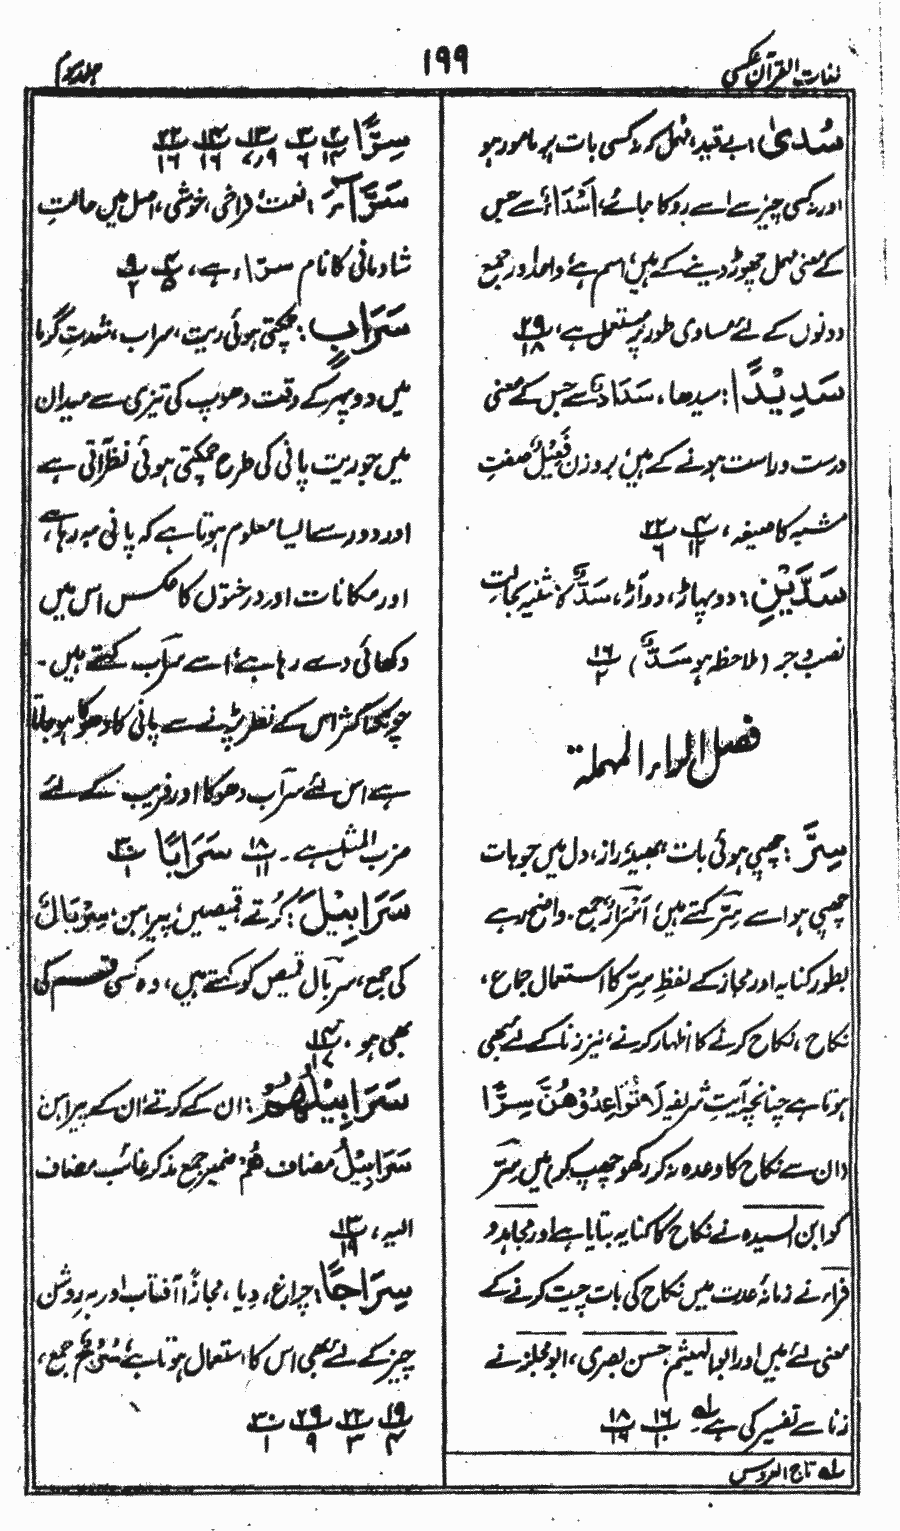 لغات القرآن عکسی
۱۹۹
جلد سوم
سُدیً: بے قید، مہمل کہ نہ کسی بات پر مامور ہو
اور نہ کسی چیز سے اسے روکا جائے، اَسْدَاءٌ سے جس
کے معنی مہمل چھوڑ دینے کے ہیں، اسم ہے، واحد اور جمع
دونوں کے لئے مساوی طور پر مستعمل ہے، ۲۹/۱۸
سَدِیْدًا: سیدھا، سَدَادٌ سے جس کے معنی
درست و راست ہونے کے ہیں، بروزن فَعِیْلٌ صفتِ
مشبہ کا صیغہ، ۴/۱۲ ۲۲/۶
سَدَّیْنِ: دو پہاڑ، دو آڑ، سَدٌّ کا تثنیہ بحالتِ
نصب و جر (ملاحظہ ہو سَدٌّ) ۱۶/۲
فصل الراء المہملۃ
سِرٌّ: چھپی ہوئی بات، بھید، راز، دل میں جو بات
چھپی ہو اسے سِرّ کہتے ہیں، اَسْرَارٌ جمع۔ واضح رہے
بطور کنایہ اور مجاز کے لفظِ سِرّ کا استعمال جماع،
نکاح، نکاح کرنے کا اظہار کرنے، نیز زنا کے لئے بھی
ہوتا ہے چنانچہ آیتِ شریفہ لَا تُوَاعِدُوْهُنَّ سِرًّا
(ان سے نکاح کا وعدہ نہ کر رکھو چھپ کر) میں سِرّ
کو ابن السیدہ نے نکاح کا کنایہ بتایا ہے اور مجاہد و
فراء نے زمانۂ عدت میں نکاح کی بات چیت کرنے کے
معنی لئے ہیں اور ابو الہیثم، حسن بصری، ابو مجلز نے
زنا سے تفسیر کی ہے۔ لہ ۱۶/۱۰ ۱۸/۱۹
لہ تاج العروس
سِرًّا ۲/۱۴ ۳/۶ ۱۳/۷،۹ ۱۴/۱۶ ۲۲/۱۶
سَرَّآءُ: نعمت، فراخی، خوشی، اصل میں حالتِ
شادمانی کا نام سرّاء ہے، ۴/۵ ۹/۲
سَرَابٍ: چمکتی ہوئی ریت، سراب، شدتِ گرما
میں دوپہر کے وقت دھوپ کی تیزی سے میدان
میں جو ریت پانی کی طرح چمکتی ہوئی نظر آتی ہے
اور دور سے ایسا معلوم ہوتا ہے کہ پانی بہہ رہا ہے،
اور مکانات اور درختوں کا عکس اس میں
دکھائی دے رہا ہے، اسے سراب کہتے ہیں۔
چونکہ اکثر اس کے نظر پڑنے سے پانی کا دھوکا ہو جاتا
ہے اس لئے سراب دھوکا اور فریب کے لئے
ضرب المثل ہے۔ ۱۸/۱۱ سَرَابًا ۳۰/۱
سَرَابِیْلَ: کُرتے، قمیصیں، پیراہن، سِرْبَالٌ
کی جمع، سربال قمیص کو کہتے ہیں، وہ کسی قسم کی
بھی ہو۔ ۱۴/۱۷
سَرَابِیْلُهُمْ: ان کے کرتے، ان کے پیراہن
سَرَابِیْلُ مضاف هُمْ ضمیر جمع مذکر غائب مضاف
الیہ، ۱۳/۱۹
سِرَاجًا: چراغ، دِیا، مجازًا آفتاب اور ہر روشن
چیز کے لئے بھی اس کا استعمال ہوتا ہے، سُرُجٌ جمع،
۱۹/۴ ۲۲/۳ ۲۹/۹ ۳۰/۱